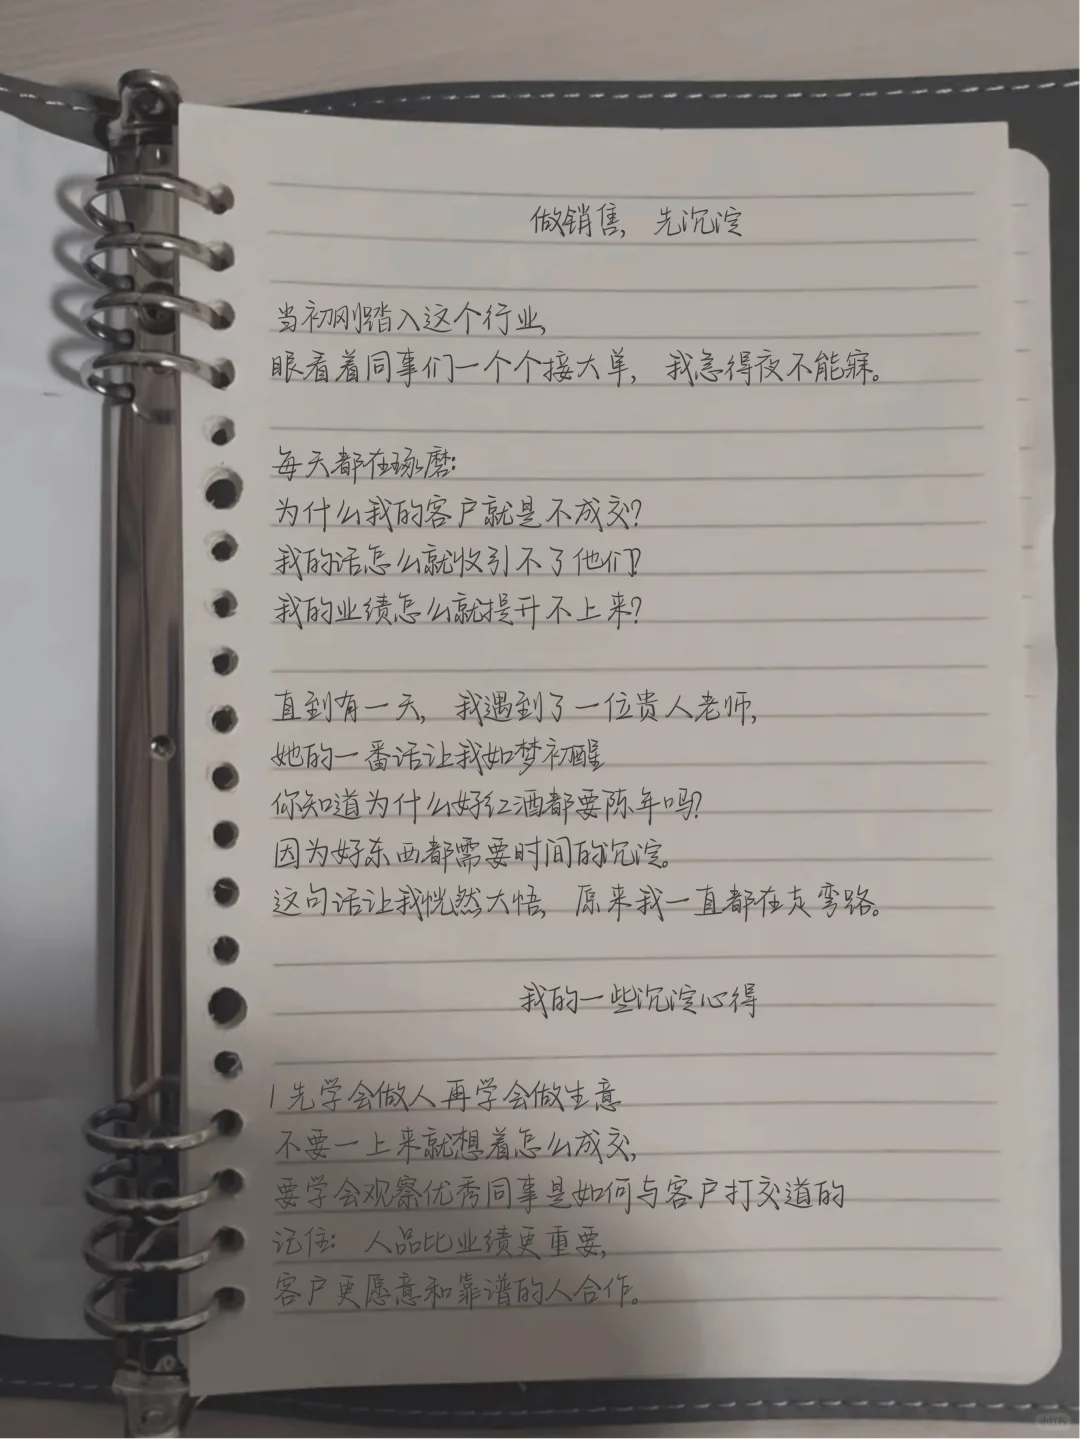 做销售，先沉淀
当初刚踏入这个行业，
眼看着同事们一个个接大单，我急得夜不能寐。
每天都在琢磨：
为什么我的客户就是不成交？
我的话怎么就收引不了他们？
我的业绩怎么就提升不上来？
直到有一天，我遇到了一位贵人老师，
她的一番话让我如梦初醒
你知道为什么好红酒都要陈年吗？
因为好东西都需要时间的沉淀。
这句话让我恍然大悟，原来我一直都在走弯路。
我的一些沉淀心得
1先学会做人再学会做生意
不要一上来就想着怎么成交，
要学会观察优秀同事是如何与客户打交道的
记住：人品比业绩更重要，
客户更愿意和靠谱的人合作。